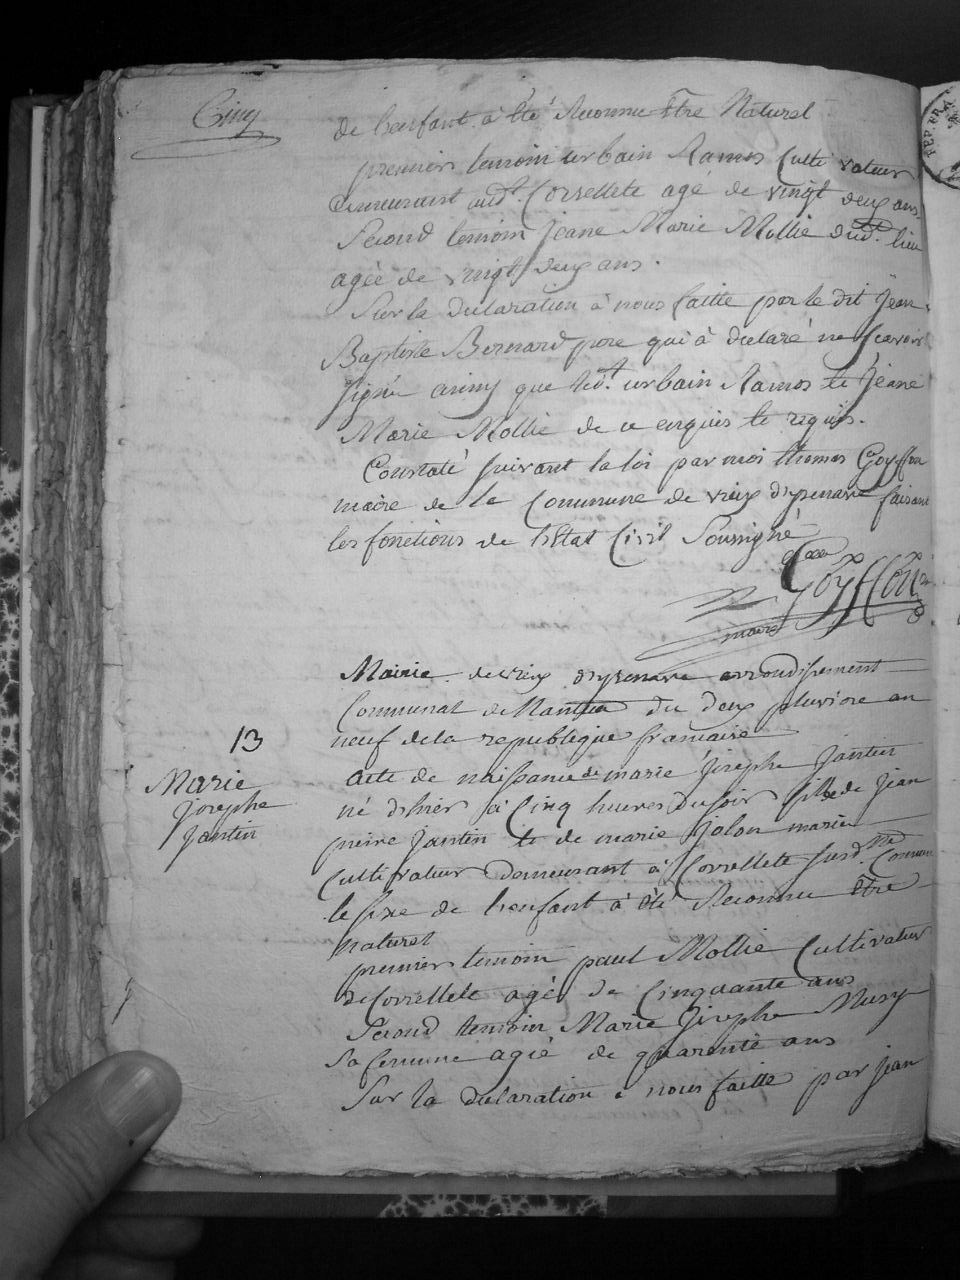 Cinq
de l'enfant à été Reconnu être Naturel
premier temoin urbain Ramos Cultivateur
demeurant aud.t Correllete agé de vingt deux ans.
Second temoin Jeane Marie Mollie dud.t lieu
agée de vingt deux ans.
Sur la declaration à nous faitte par le dit Jean
Baptiste Bernard pere qui à declaré ne scavoir
signé ainsy que led.t urbain Ramos et Jeane
Marie Mollie de ce enquis et requis.
Constaté suivant la loi par moi thomas Goyffon
maire de la Commune de vieux d'yzenave faisant
les fonctions de l'Etat Civil Soussigné
Goyffon
maire
Mairie de vieux d'yzenave arrondissement
Communal de Nantua du deux pluviose an
neuf de la republique francaise
13
Marie
josephe
jantin
acte de naissance de marie josephe Jantin
né d'hier à Cinq heures du soir fille de Jean
pierre Jantin et de marie jolon mariés
Cultivateur demeurant à Correllete susd. Commune
le sexe de l'enfant à été Reconnu être
naturel
premier temoin paul Mollie Cultivateur
de Correllete agé de Cinquante ans
Second temoin Marie Josephe Musy
sa femme agée de quarente ans
Sur la declaration à nous faitte par jean